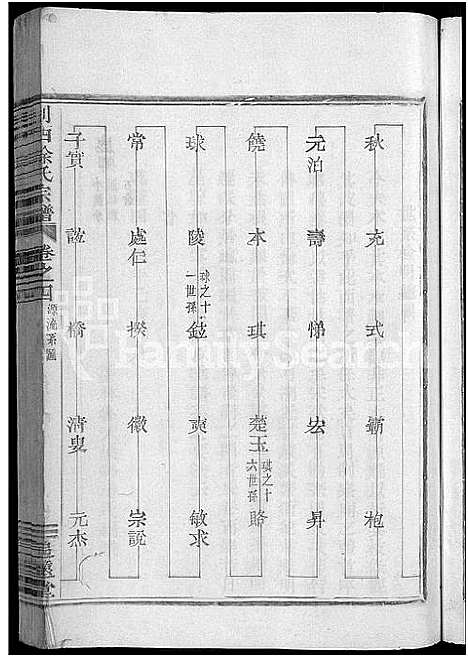 秋 充 式 霸 枹
元泊 壽 悌 宏 昇
饒 本 琪 楚玉 琪之十六世孫 賂
球 陵 球之十一世孫 鉉 奭 敏求
常 處仁 揆 徽 宗説
子實 誼 橋 清叟 元杰
西徐氏宗譜 卷之四 源流系圖
FamilySearch